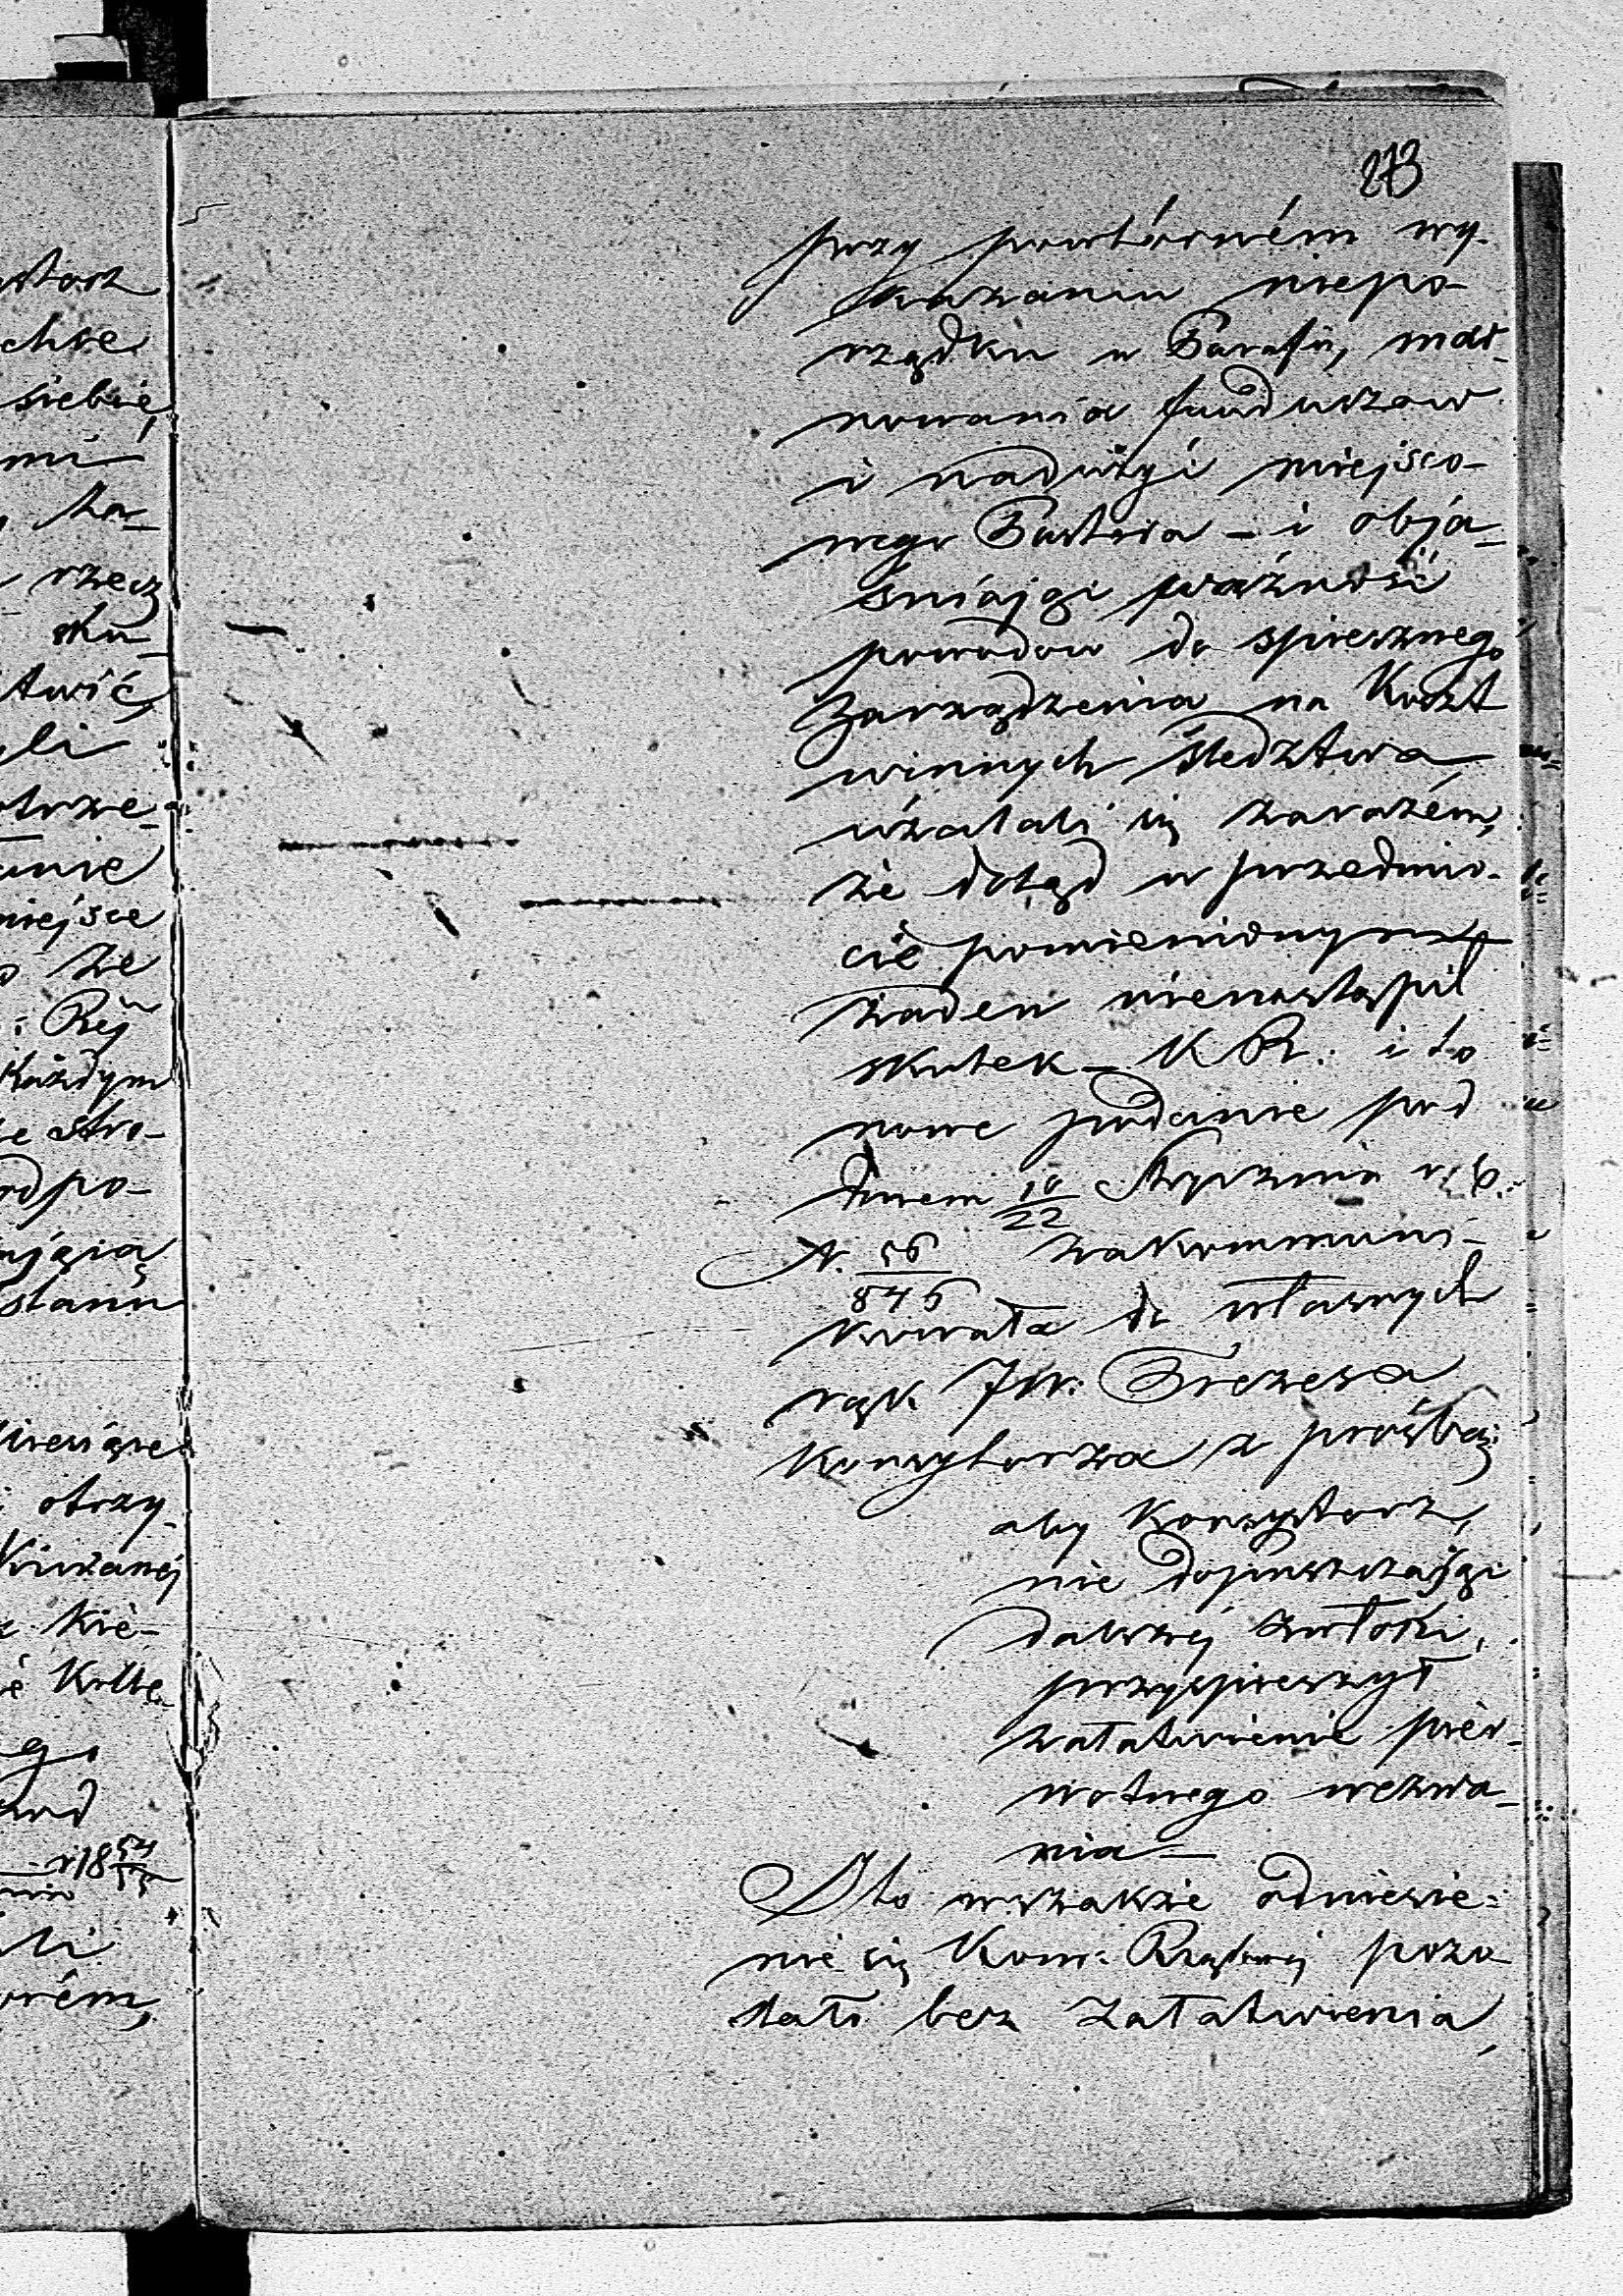 273
przy powtórném wy-
kazaniu niepo-
rządku w Parafii, mar-
nowania funduszow
i nadużyć miejsco-
wego Pastora – i obja-
śniając ważność
powodow do spiesznego
Zarządzenia na Koszt
winnych śledztwa,
użalali się zarazém,
że dotąd w przedmio-
cie pomienionym
żaden nienastąpił
skutek – K R: i to
nowe podanie pod
dniem 10/22 Stycznia r. b.
N. 56/846 zakommuni-
kowała do własnych
rąk JW: Prezesa
Konsystorza z prośbą;
aby Konsystorz,
nie dopuszczając
dalszéj zwłoki,
przyspieszył
załatwienie pier-
wotnego wezwa-
nia –
I to wszakże odniesie-
nie się Kom: Rządowéj pozo
stało bez załatwienia
stosz
chce
siebie,
mi
Za-
rzecz
sku-
twić,
li
otrze-
anie
miejsce
że
: Rej
Każdym
e stro-
odpo-
ającą
stanu
Miesiące
otrzy-
Kie-
Kolle-
go,
r 18 54/55
li
orém,